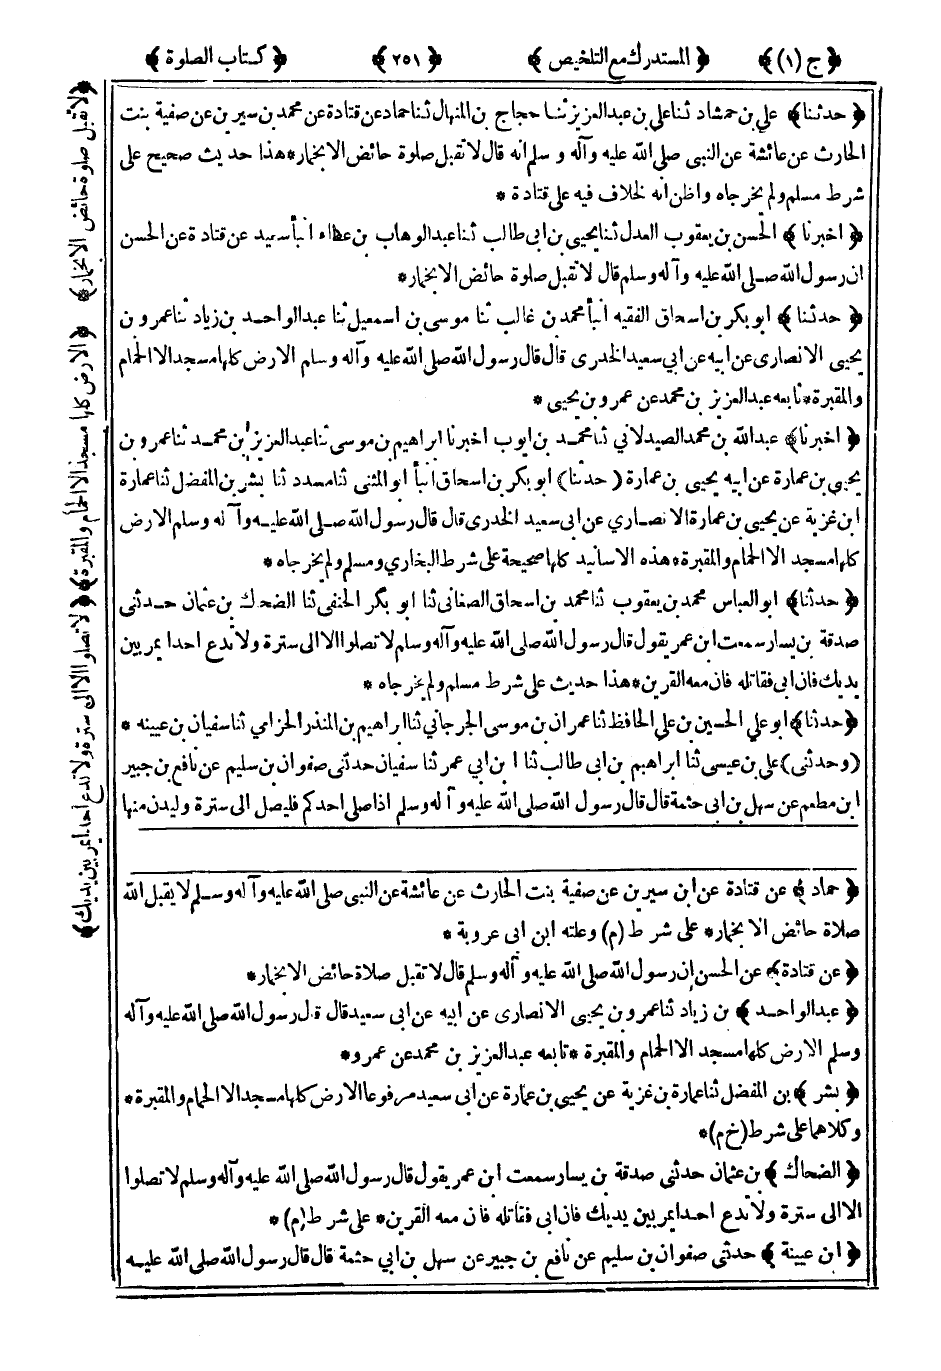 ﴿ ج (١) ﴾ ﴿ المستدرك مع التلخيص ﴾ ﴿ ٢٥١ ﴾ ﴿ كتاب الصلوة ﴾
﴿ حدثنا ﴾ علي بن حمشاد ثنا علي بن عبد العزيز ثنا حجاج بن المنهال ثنا حماد عن قتادة عن محمد بن سيرين عن صفية بنت
الحارث عن عائشة عن النبى صلى الله عليه وآله و سلم انه قال لا تقبل صلوة حائض الا بخمار * هذا حديث صحيح على
شرط مسلم ولم يخرجاه واظن انه لخلاف فيه على قتادة *
﴿ اخبرنا ﴾ الحسن بن يعقوب العدل ثنا يحيى بن ابى طالب ثنا عبد الوهاب بن عطاء انبأ سعيد عن قتادة عن الحسن
ان رسول الله صلى الله عليه وآله وسلم قال لا تقبل صلوة حائض الا بخمار *
﴿ حدثنا ﴾ ابو بكر بن اسحاق الفقيه انبأ محمد بن غالب ثنا موسى بن اسمعيل ثنا عبد الواحد بن زياد ثنا عمرو بن
يحيى الانصارى عن ابيه عن ابي سعيد الخدرى قال قال رسول الله صلى الله عليه وآله وسلم الارض كلها مسجد الا الحمام
والمقبرة * تابعه عبد العزيز بن محمد عن عمرو بن يحيى *
﴿ اخبرنا ﴾ عبد الله بن محمد الصيدلاني ثنا محمد بن ايوب اخبرنا ابراهيم بن موسى ثنا عبد العزيز بن محمد ثنا عمرو بن
يحيى بن عمارة عن ابيه يحيى بن عمارة ( حدثنا ) ابو بكر بن اسحاق انبأ ابو المثنى ثنا مسدد ثنا بشر بن المفضل ثنا عمارة
ابن غزية عن يحيى بن عمارة الانصاري عن ابى سعيد الخدرى قال قال رسول الله صلى الله عليه وآله وسلم الارض
كلها مسجد الا الحمام والمقبرة * هذه الاسانيد كلها صحيحة على شرط البخاري ومسلم ولم يخرجاه *
﴿ حدثنا ﴾ ابو العباس محمد بن يعقوب ثنا محمد بن اسحاق الصغانى ثنا ابو بكر الحنفى ثنا الضحاك بن عثمان حدثنى
صدقة بن يسار سمعت ابن عمر يقول قال رسول الله صلى الله عليه وآله وسلم لا تصلوا الا الى سترة ولا تدع احدا يمر بين
يديك فان ابى فقاتله فان معه القرين * هذا حديث على شرط مسلم ولم يخرجاه *
﴿ حدثنا ﴾ ابو علي الحسين بن علي الحافظ ثنا عمران بن موسى الجرجاني ثنا ابراهيم بن المنذر الحزامي ثنا سفيان بن عيينه *
( وحدثنى ) علي بن عيسى ثنا ابراهيم بن ابى طالب ثنا ابن ابي عمر ثنا سفيان حدثنى صفوان بن سليم عن نافع بن جبير
ابن مطعم عن سهل بن ابى حثمة قال قال رسول الله صلى الله عليه وآله وسلم اذا صلى احدكم فليصل الى سترة وليدن منها
﴿ حماد ﴾ عن قتادة عن ابن سيرين عن صفية بنت الحارث عن عائشة عن النبى صلى الله عليه وآله وسلم لا يقبل الله
صلاة حائض الا بخمار * على شرط (م) وعلته ابن ابى عروبة *
﴿ عن قتادة ﴾ عن الحسن ان رسول الله صلى الله عليه وآله وسلم قال لا تقبل صلاة حائض الا بخمار *
﴿ عبد الواحد ﴾ بن زياد ثنا عمرو بن يحيى الانصارى عن ابيه عن ابى سعيد قال قال رسول الله صلى الله عليه وآله
وسلم الارض كلها مسجد الا الحمام والمقبرة * تابعه عبد العزيز بن محمد عن عمرو *
﴿ بشر ﴾ بن المفضل ثنا عمارة بن غزية عن يحيى بن عمارة عن ابى سعيد مرفوعا الارض كلها مسجد الا الحمام والمقبرة *
وكلاهما على شرط (خ م) *
﴿ الضحاك ﴾ بن عثمان حدثنى صدقة بن يسار سمعت ابن عمر يقول قال رسول الله صلى الله عليه وآله وسلم لا تصلوا
الا الى سترة ولا تدع احدا يمر بين يديك فان ابى فقاتله فان معه القرين * على شرط (م) *
﴿ ابن عيينة ﴾ حدثنى صفوان بن سليم عن نافع بن جبير عن سهل بن ابي حثمة قال قال رسول الله صلى الله عليه
﴿ لا تقبل صلوة حائض الا بخمار ﴾ ﴿ الارض كلها مسجد الا الحمام والمقبرة ﴾ ﴿ لا تصلوا الا الى سترة ولا تدع احدا يمر بين يديك ﴾